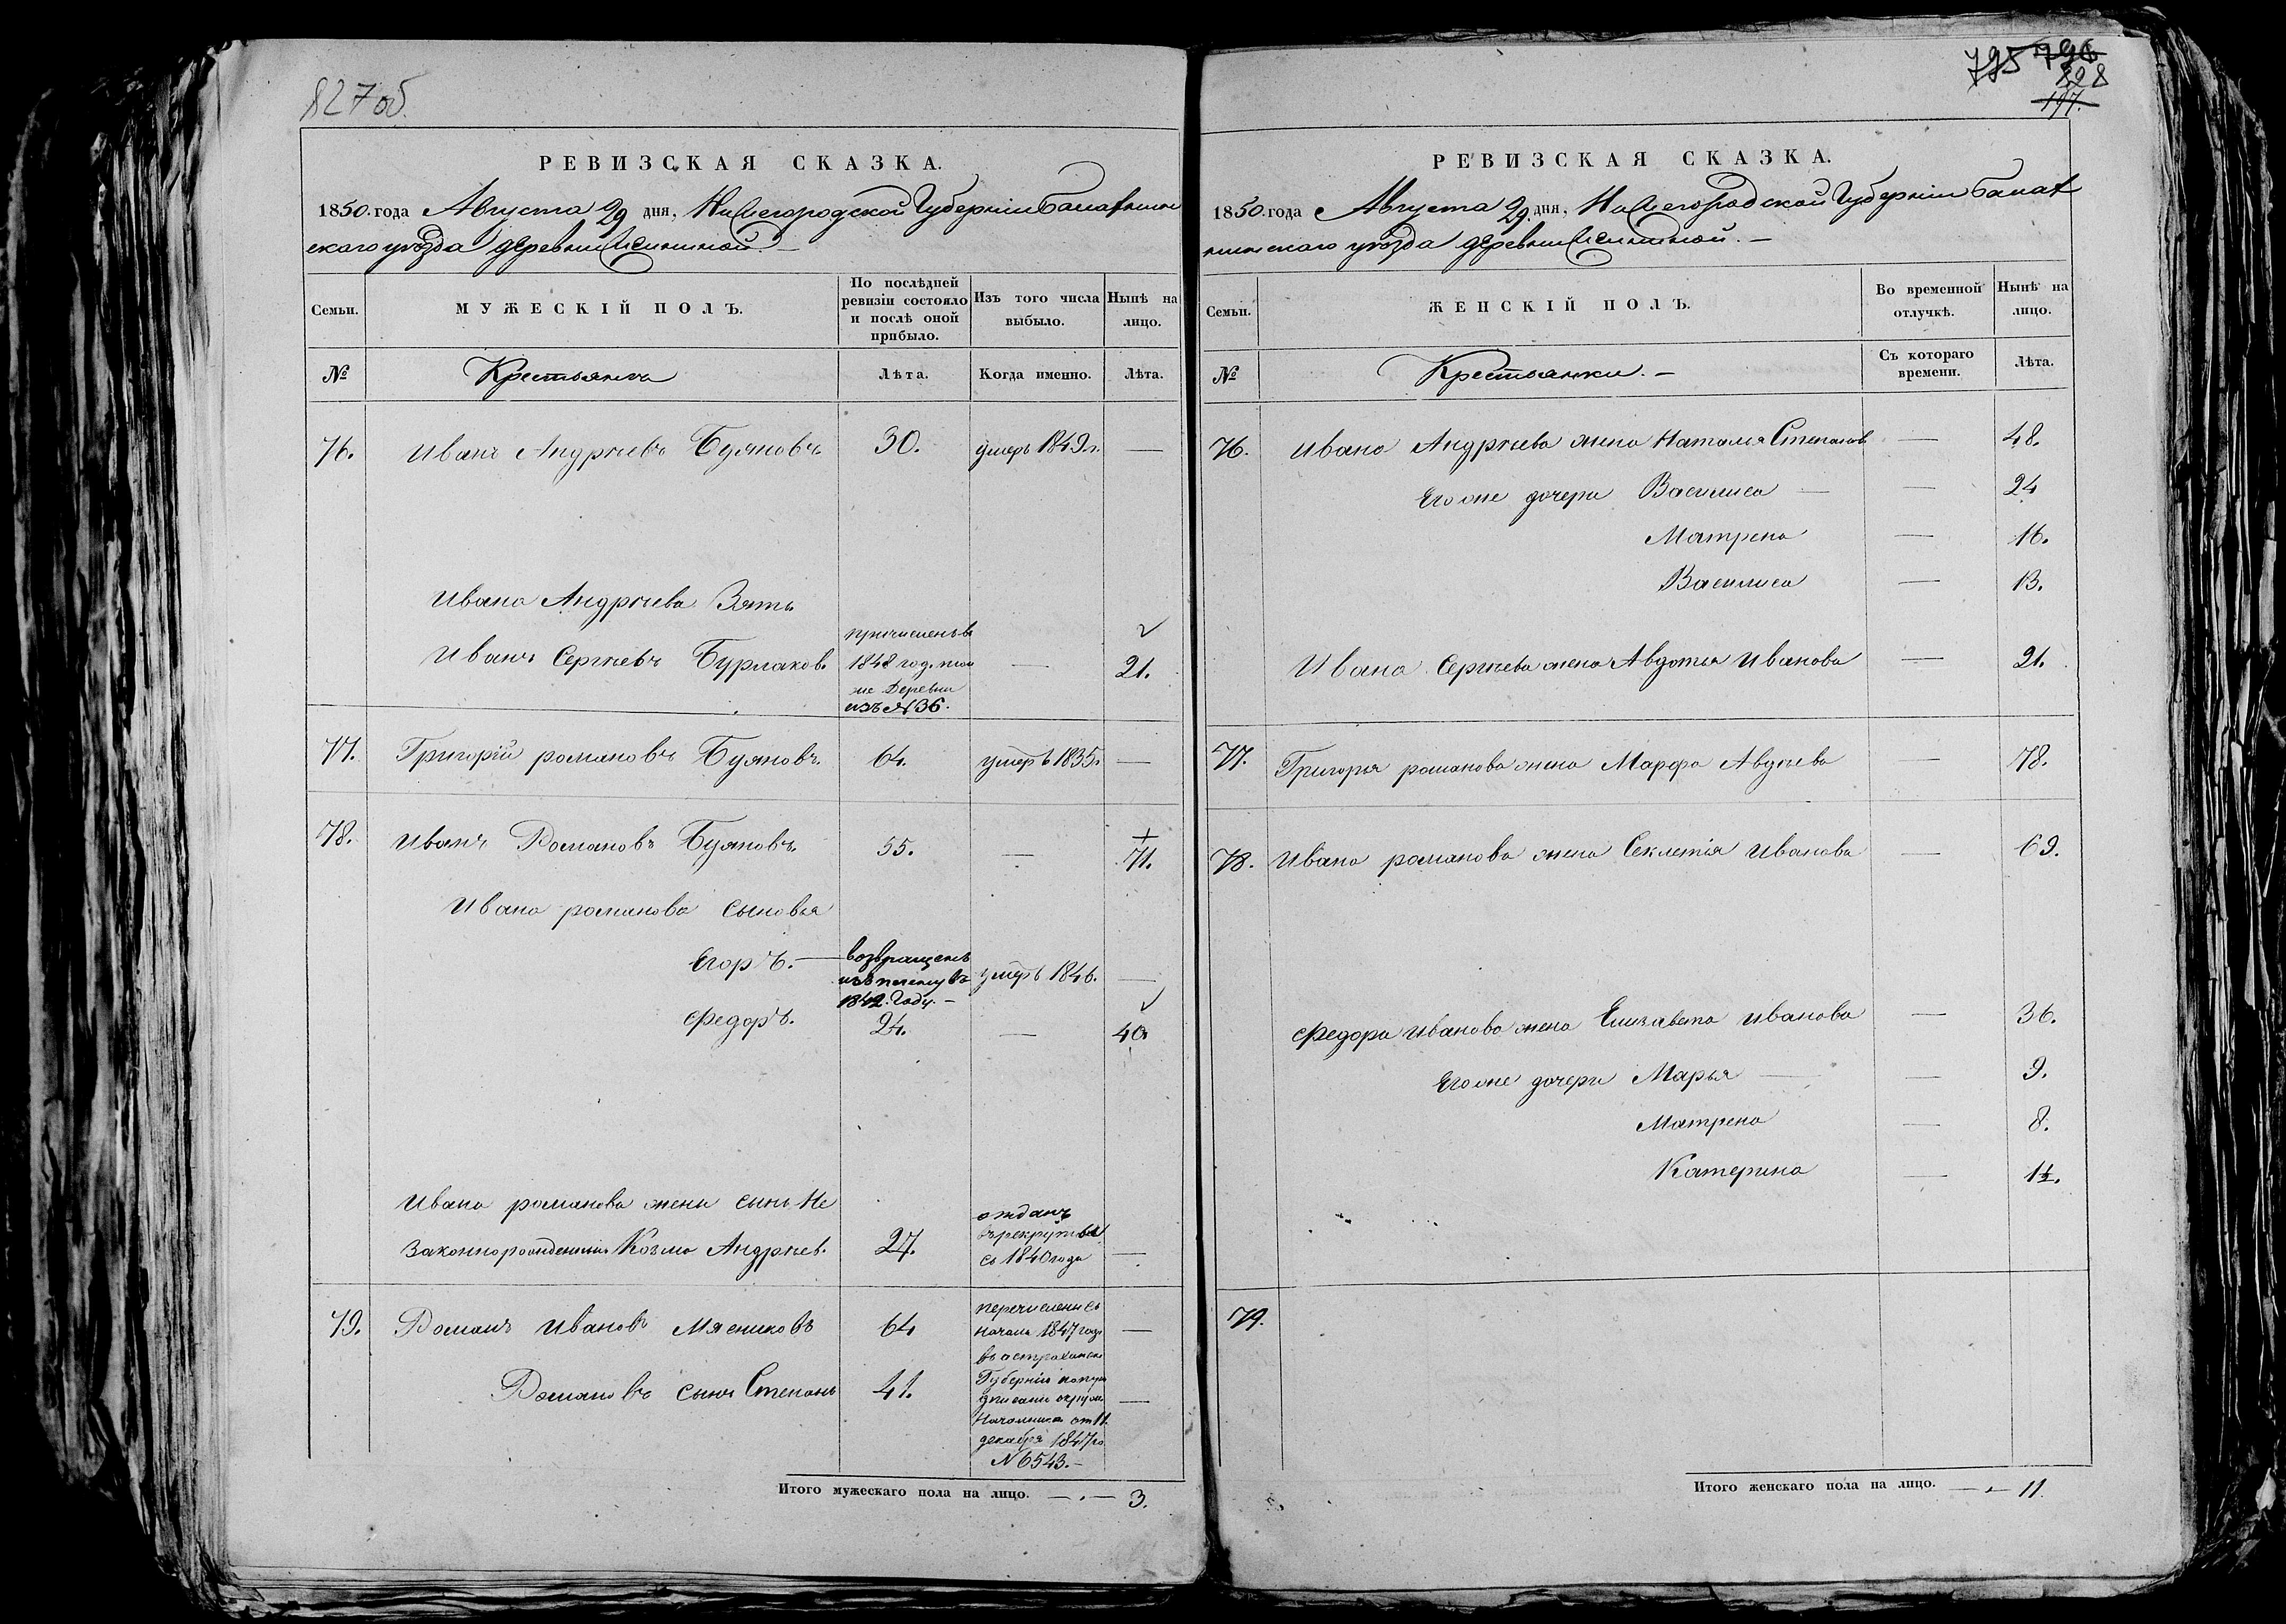 827 об.
РЕВИЗСКАЯ СКАЗКА.
1850. года Августа 29 дня, Нижегородской Губерніи Балахнин
скаго уезда деревни
Семьи.
МУЖЕСКІЙ ПОЛЪ.
По послѣдней
ревизіи состояло
и послѣ оной
прибыло.
Изъ того числа
выбыло.
Нынѣ на
лицо.
№
Крестьянъ
Лѣта.
Когда именно.
Лѣта.
76. Иванъ Андрѣевъ Буяновъ 30. умеръ 1849 г. —
Ивана Андрѣева Зять
Иванъ Сергѣевъ Бурлаковъ
причисленъ въ
1848 год. той
же деревни
изъ №36.
— 21.
77. Григорій романовъ Буяновъ 64. умеръ 1835 —
78. Иванъ Романовъ Буяновъ 55. — 71.
Ивана романова сыновья
Егоръ. —
возвращенъ
изъ
1842. Году. —
умеръ 1846. —
Федоръ. 24. — 40
Ивана романова жены сынъ Не
законнорожденный Козма Андрѣев. 27.
отданъ
въ рекруты
съ 1840 года
—
79. Романъ Ивановъ Мясниковъ 64
Романовъ сынъ Степанъ 41.
перечислены съ
начала 1847 года
въ астраханск
Губернію по пред
писанію окруж.
Начальника от 11.
декабря 1847 го
№ 6543. —
Итого мужескаго пола на лицо. — . — 3.
795 796
828
197.
РЕВИЗСКАЯ СКАЗКА.
1850. года Августа 29. дня, Нижегородской Губерніи Балах
нинскаго уезда деревни
Семьи.
ЖЕНСКІЙ ПОЛЪ.
Во временной
отлучкѣ.
Нынѣ на
лицо.
№
Крестьянки. —
Съ котораго
времени.
Лѣта.
76. Ивана Андрѣева жена Наталья Степанов. — 48.
Его же дочери Василиса — — 24
Матрена — 16.
Василиса — 13.
Ивана Сергѣева жена Авдотья Иванова — 21.
77. Григорья романова жена Марфа Авдѣева — 78.
78. Ивана романова жена Секлетія Иванова — 69.
Федора Иванова жена Елизавета Иванова — 36.
Его же дочери Марья — — 9.
Матрена — 8.
Катерина — 1½.
79.
Итого женскаго пола на лицо. — . — 11.